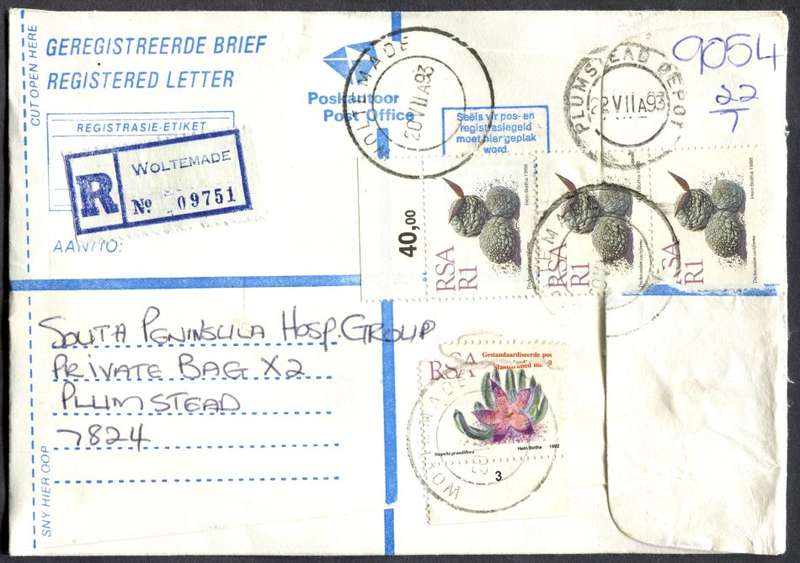 CUT OPEN HERE
GEREGISTREERDE BRIEF
REGISTERED LETTER
Poskantoor
Post Office
WOLTEMADE
20 VII A 93
PLUMSTEAD DEPOT
22 VII A 93
1
9054
22/7
REGISTRASIE-ETIKET
R WOLTEMADE
No 09751
AAN/TO:
Seëls vir pos- en
registrasiegeld
moet hier geplak
word.
40,00
RSA R1
Hein Botha 1988
RSA R1
RSA R1
Hein Botha 1988
SOUTH PENINSULA HOSP. GROUP
PRIVATE BAG X2
PLUMSTEAD
7824
RSA
Gestandaardiseerde pos
Stapelia grandiflora
Hein Botha 1992
3
SNY HIER OOP